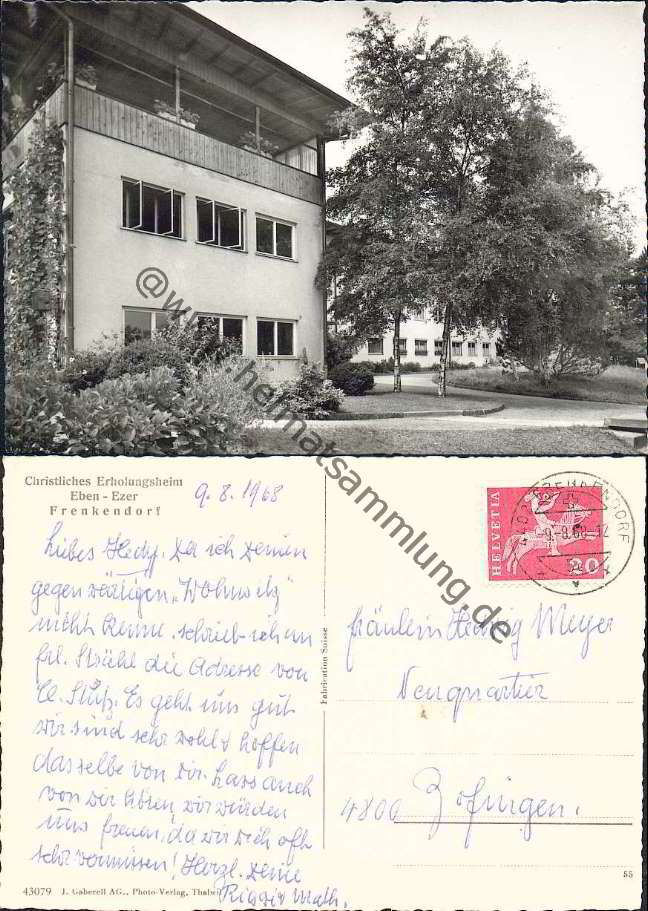 @www.heimatsammlung.de
Christliches Erholungsheim
Eben - Ezer
Frenkendorf
9.8.1968
Liebes Hedy. Da ich Deinen
gegenwärtigen „Wohnsitz"
nicht kenne, schrieb ich an
Frl. Strähl die Adresse von
Es geht uns gut
wir sind sehr wohl & hoffen
dasselbe von Dir. Lass auch
von Dir hören, wir würden
uns freuen, da wir Dich oft
sehr vermissen! Herzl. Deine
Math.
Fabrication Suisse
HELVETIA
20
FRENKENDORF
-9.-8.68-12
Fräulein Hedwig Meyer
Neuquartier
4800 Zofingen.
55
43079 J. Gaberell AG., Photo-Verlag, Thalwil